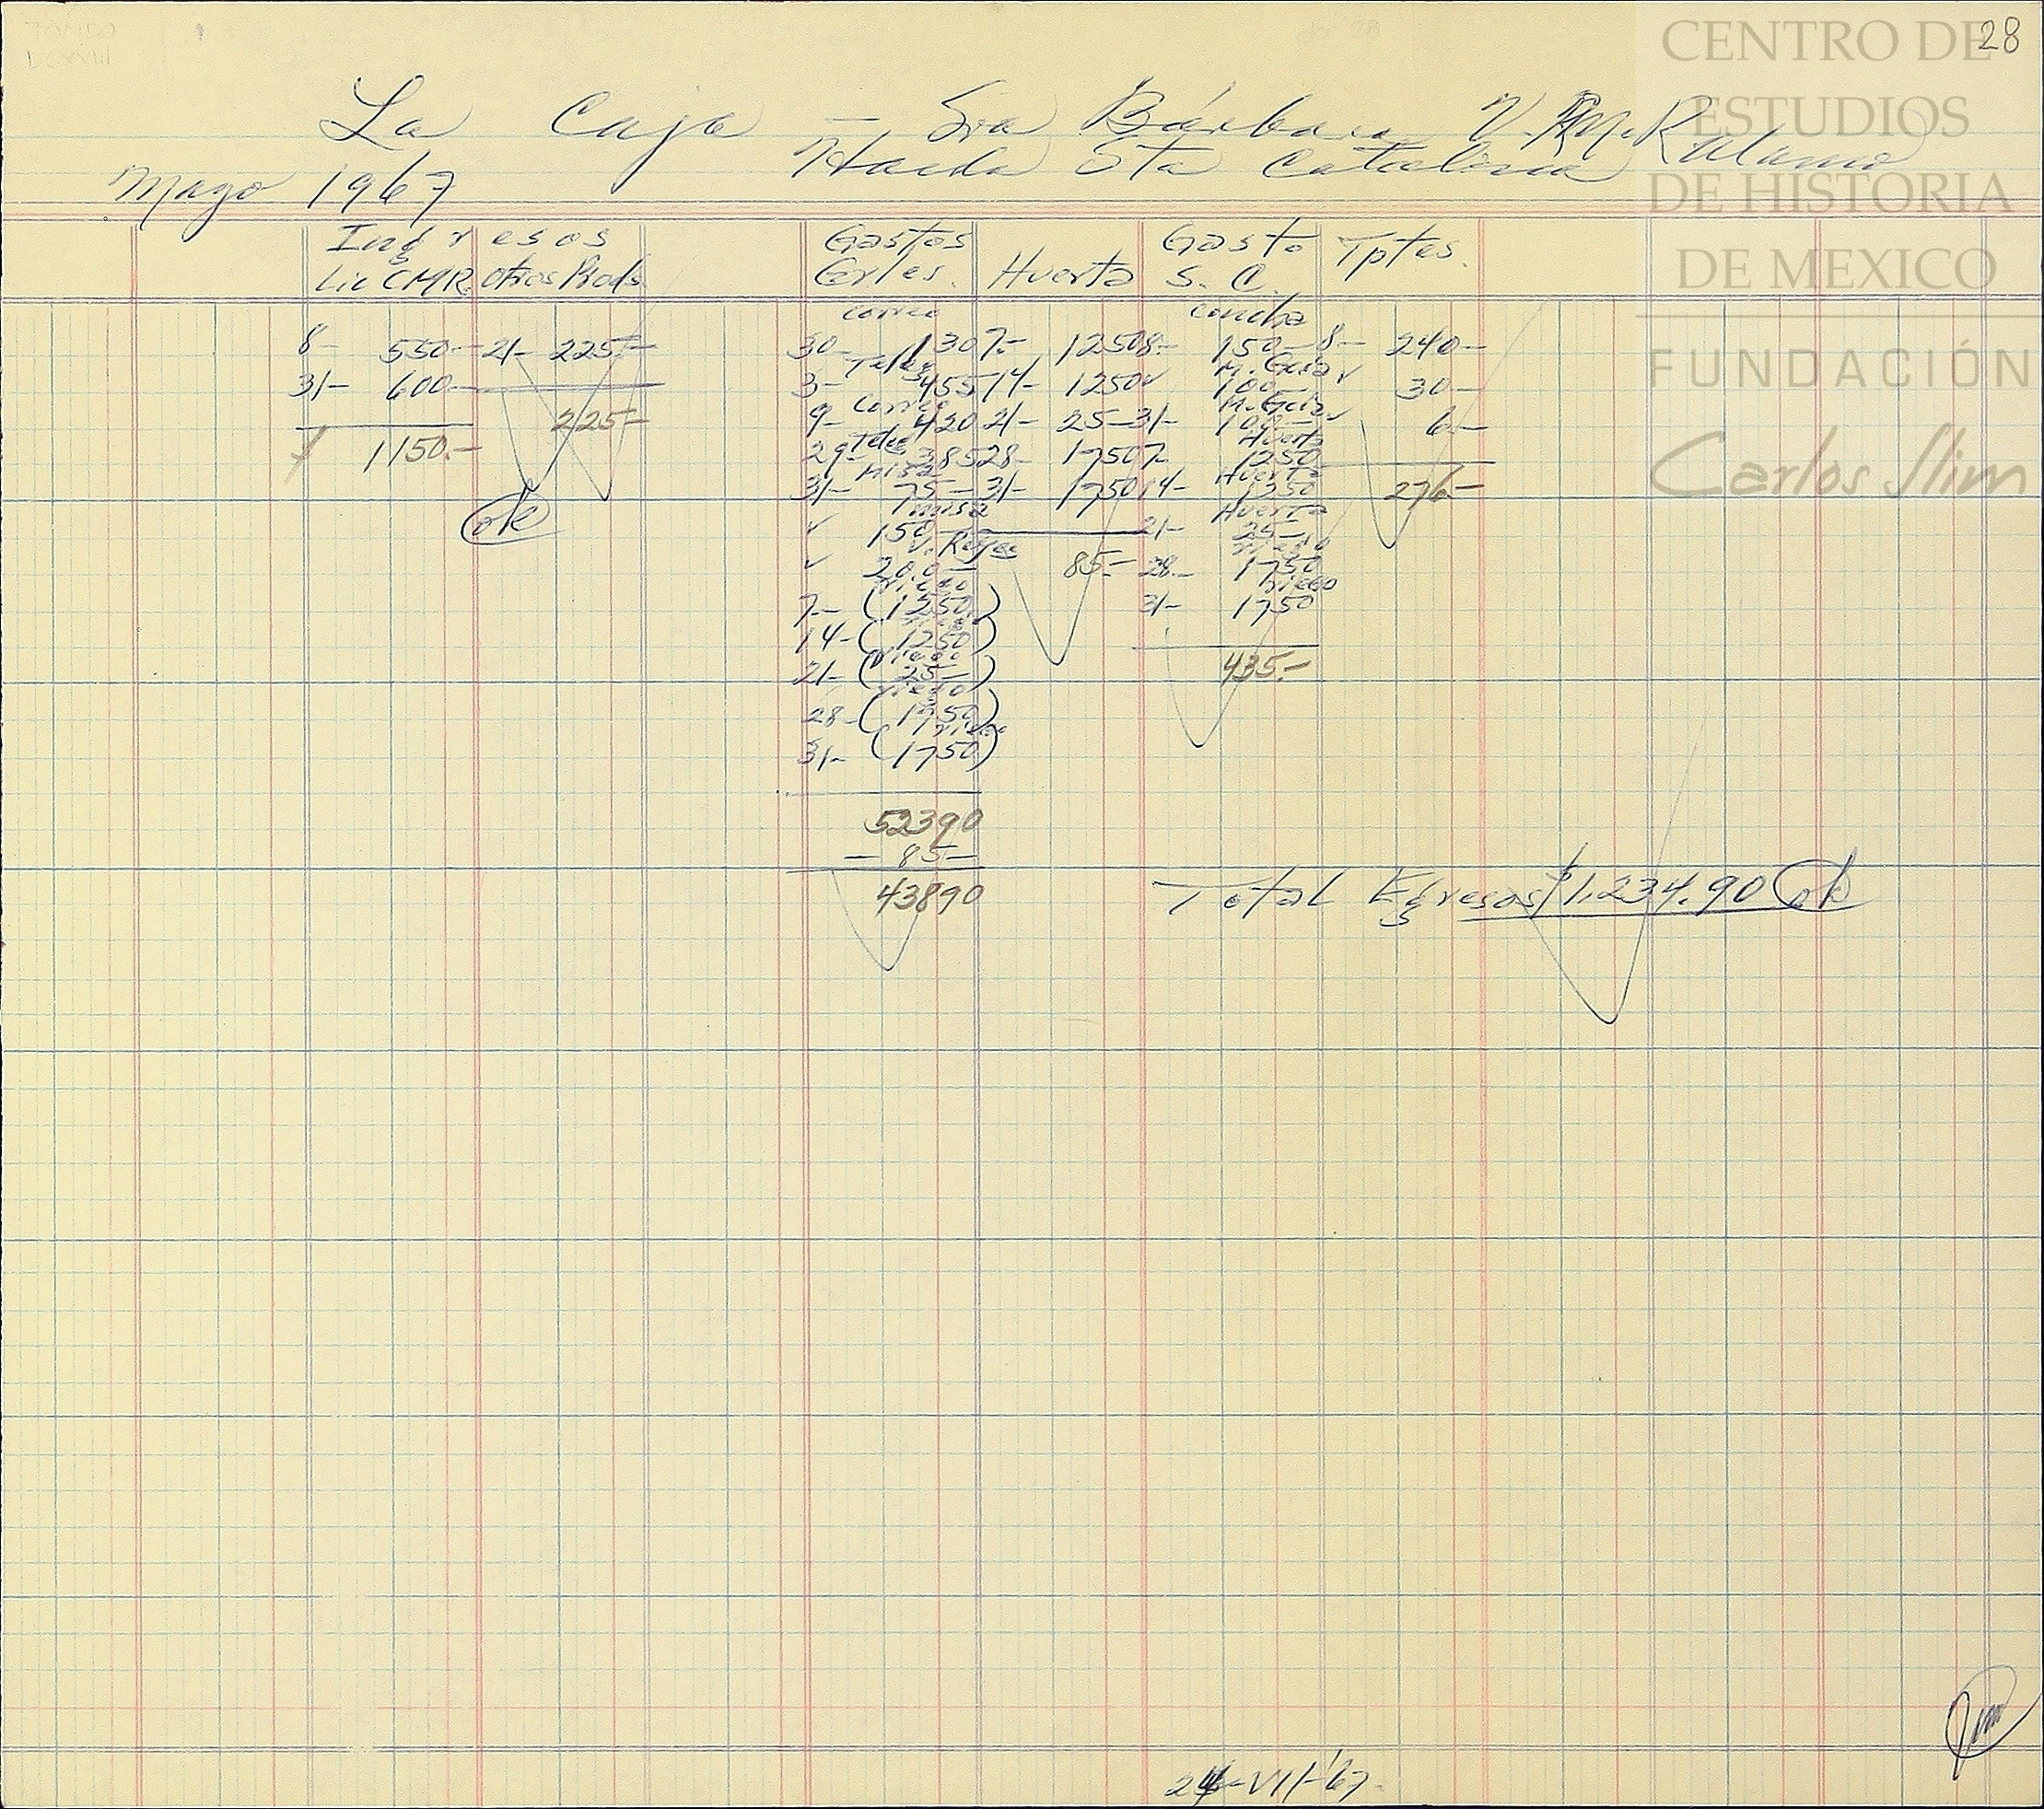 28
CENTRO DE
ESTUDIOS
DE HISTORIA
DE MEXICO
FUNDACIÓN
Carlos Slim
La Caja — Sra Bárbara V. M. R Alamo
Hacda Sta Catalina
Mayo 1967
Ingresos Gastos Gasto Tptes.
Lic CMR. Otros Prods. Grles. Huerta S. C.
correo concha
8- 550- 21- 225- 30- 130 7.- 1250 8.- 150- 8- 240-
Teleg M. Gcia
31- 600- 3- 455 14- 1250 ✓ 100- ✓ 30-
Correo M. Gcia
225- 9- 420 21- 25- 31- 100- ✓ 6.-
Teleg Huerta
1150.- 29- 385 28- 1750 7- 1250
misa Huerta
31- 75- 31- 1750 14- 1250 276-
ok misa Huerta
✓ 150- 21- 25-
V. Reyes riego
✓ 200- 85.- 28- 1750
riego riego
7- (1250) 31- 1750
riego
14- (1250)
riego
21- (25-) 435.-
riego
28- (1750)
riego
31- (1750)
52390
— 85—
43890 Total Egresos $1,234.90 ok
24-VII-'67-